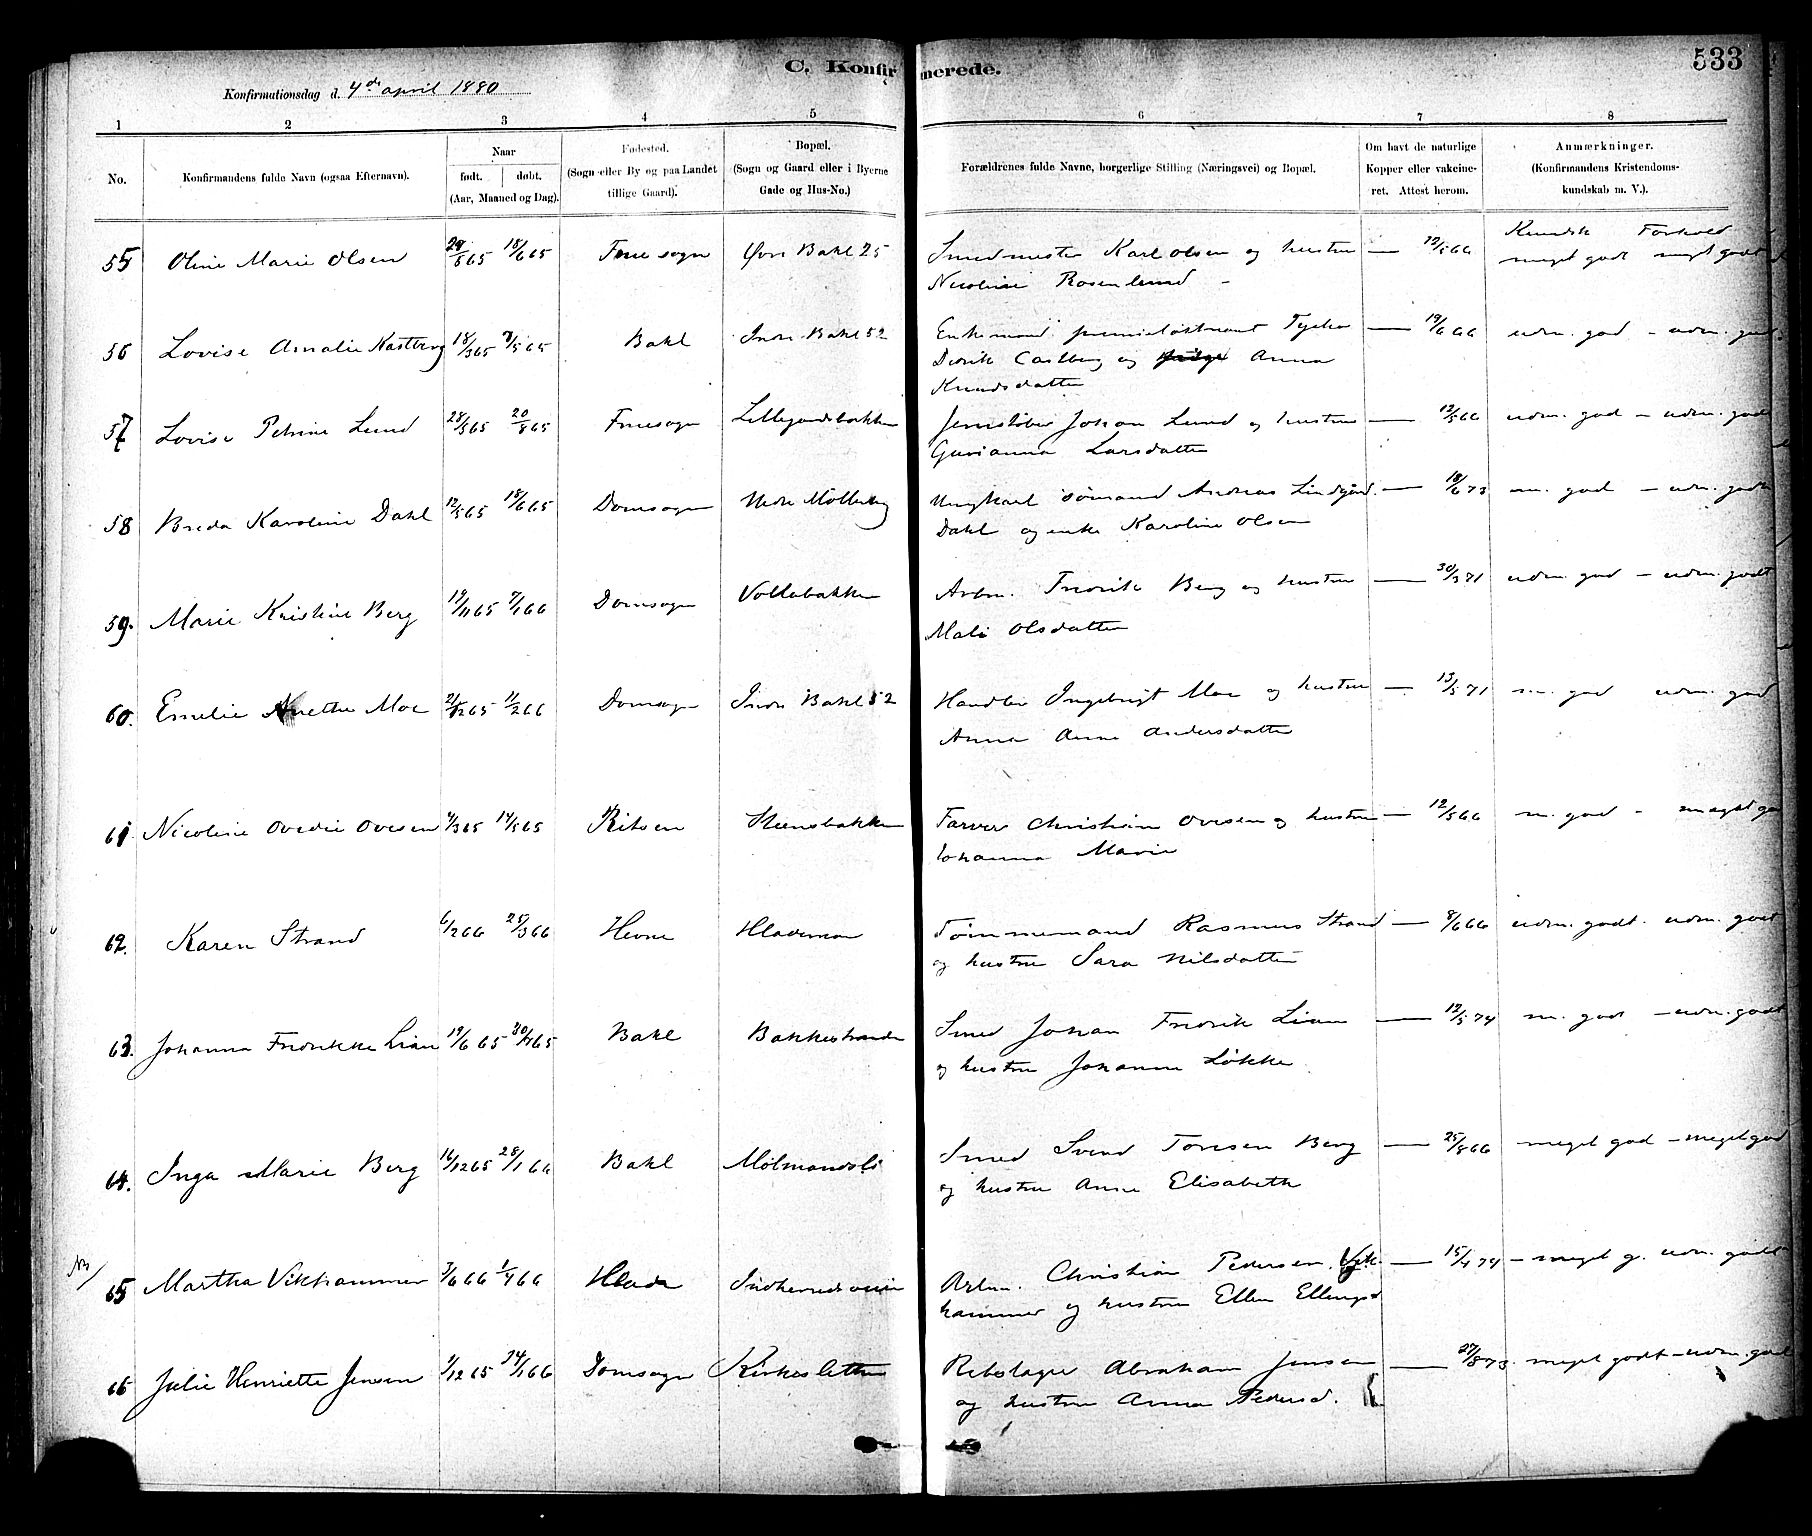 533
C. Konfirmerede.
Konfirmationsdag d. 4de april 1880
1 2 3 4 5 6 7 8
No. Konfirmandens fulde Navn (ogsaa Efternavn). Naar født. døbt. (Aar, Maaned og Dag). Fødested. (Sogn eller By og paa Landet tillige Gaard). Bopæl. (Sogn og Gaard eller i Byerne Gade og Hus-No.) Forældrenes fulde Navne, borgerlige Stilling (Næringsvei) og Bopæl. Om havt de naturlige Kopper eller vakcineret. Attest herom. Anmærkninger. (Konfirmandens Kristendomskundskab m. V.).
Kundsk Forhold
55 Oline Marie Olsen 18/6 65 Frue sogn Øvre Bakl 25 Smedmester Karl Olsen og hustru — 12/5 66 meget godt meget godt
Nicoline Rosenlund
56 Lovise Amalie Kastberg 18/3 65 7/5 65 Bakl Indr. Bakl 52 Enkemand premierløitnant Tycho — 19/6 66 udm. god – udm. god
Didrik Castberg og Anna
Knudsdatter
57 Lovise Petrine Lund 28/5 65 20/8 65 Fruesogn Lillegaardsbakken Jernstøber Johan Lund og hustru — 12/5 66 udm. god – udm. godt
Gurianna Larsdatter
58 Breda Karoline Dahl 12/5 65 18/6 65 Domsogn Nedr Møllenberg Ungkarl Sømand Andreas Lindgård — 18/6 73 m. god – udm. godt
Dahl og enke Karoline Olsen
59. Marie Kristine Berg 19/11 65 7/1 66 Domsogn Vollabakken Arbm. Fredrik Berg og hustru — 30/3 71 udm. god – udm. godt
Mali Olsdatter
60. Emelie Anette Moe 21/12 65 11/2 66 Domsogn Indr. Bakl 52 Handler Ingebrigt Moe og hustru — 13/5 71 m. god udm. god
Anna Anne Andersdatter
61. Nicoline Ovedie Ovesen 4/3 65 14/5 65 Ritsen Steensbakken Farver Christian Ovesen og hustru — 12/5 66 m. god – meget go
Johanna Marie
62. Karen Strand 6/2 66 25/3 66 Hevne Hlademoen Tømmermand Rasmus Strand — 8/6 66 udm. godt. udm. godt
og hustru Sara Nilsdatter
63. Johanna Fredrikke Lian 19/6 65 30/7 65 Bakl Bakkestranden Smed Johan Fredrik Lian — 12/5 74 m. godt – udm. godt
og hustru Johanna Løkke
64. Inga Marie Berg 16/12 65 28/1 66 Bakl Mølmandsli Smed Svend Toresen Berg — 25/8 66 meget god – meget god
og hustru Anne Elisabeth
65 Martha Vikhammer 3/6 66 1/7 66 Hlade Indherredsveien Arbm. Christian Pedersen Vikhammer — 15/4 74 – meget g. udm. godt
og hustru Ellen Ellingsd
66 Julie Henriette Jensen 1/12 65 14/1 66 Domsogn Kirkesletten Rebslager Abraham Jensen — 27/8 73. meget godt – udm. god
og hustru Anna Pedersd.